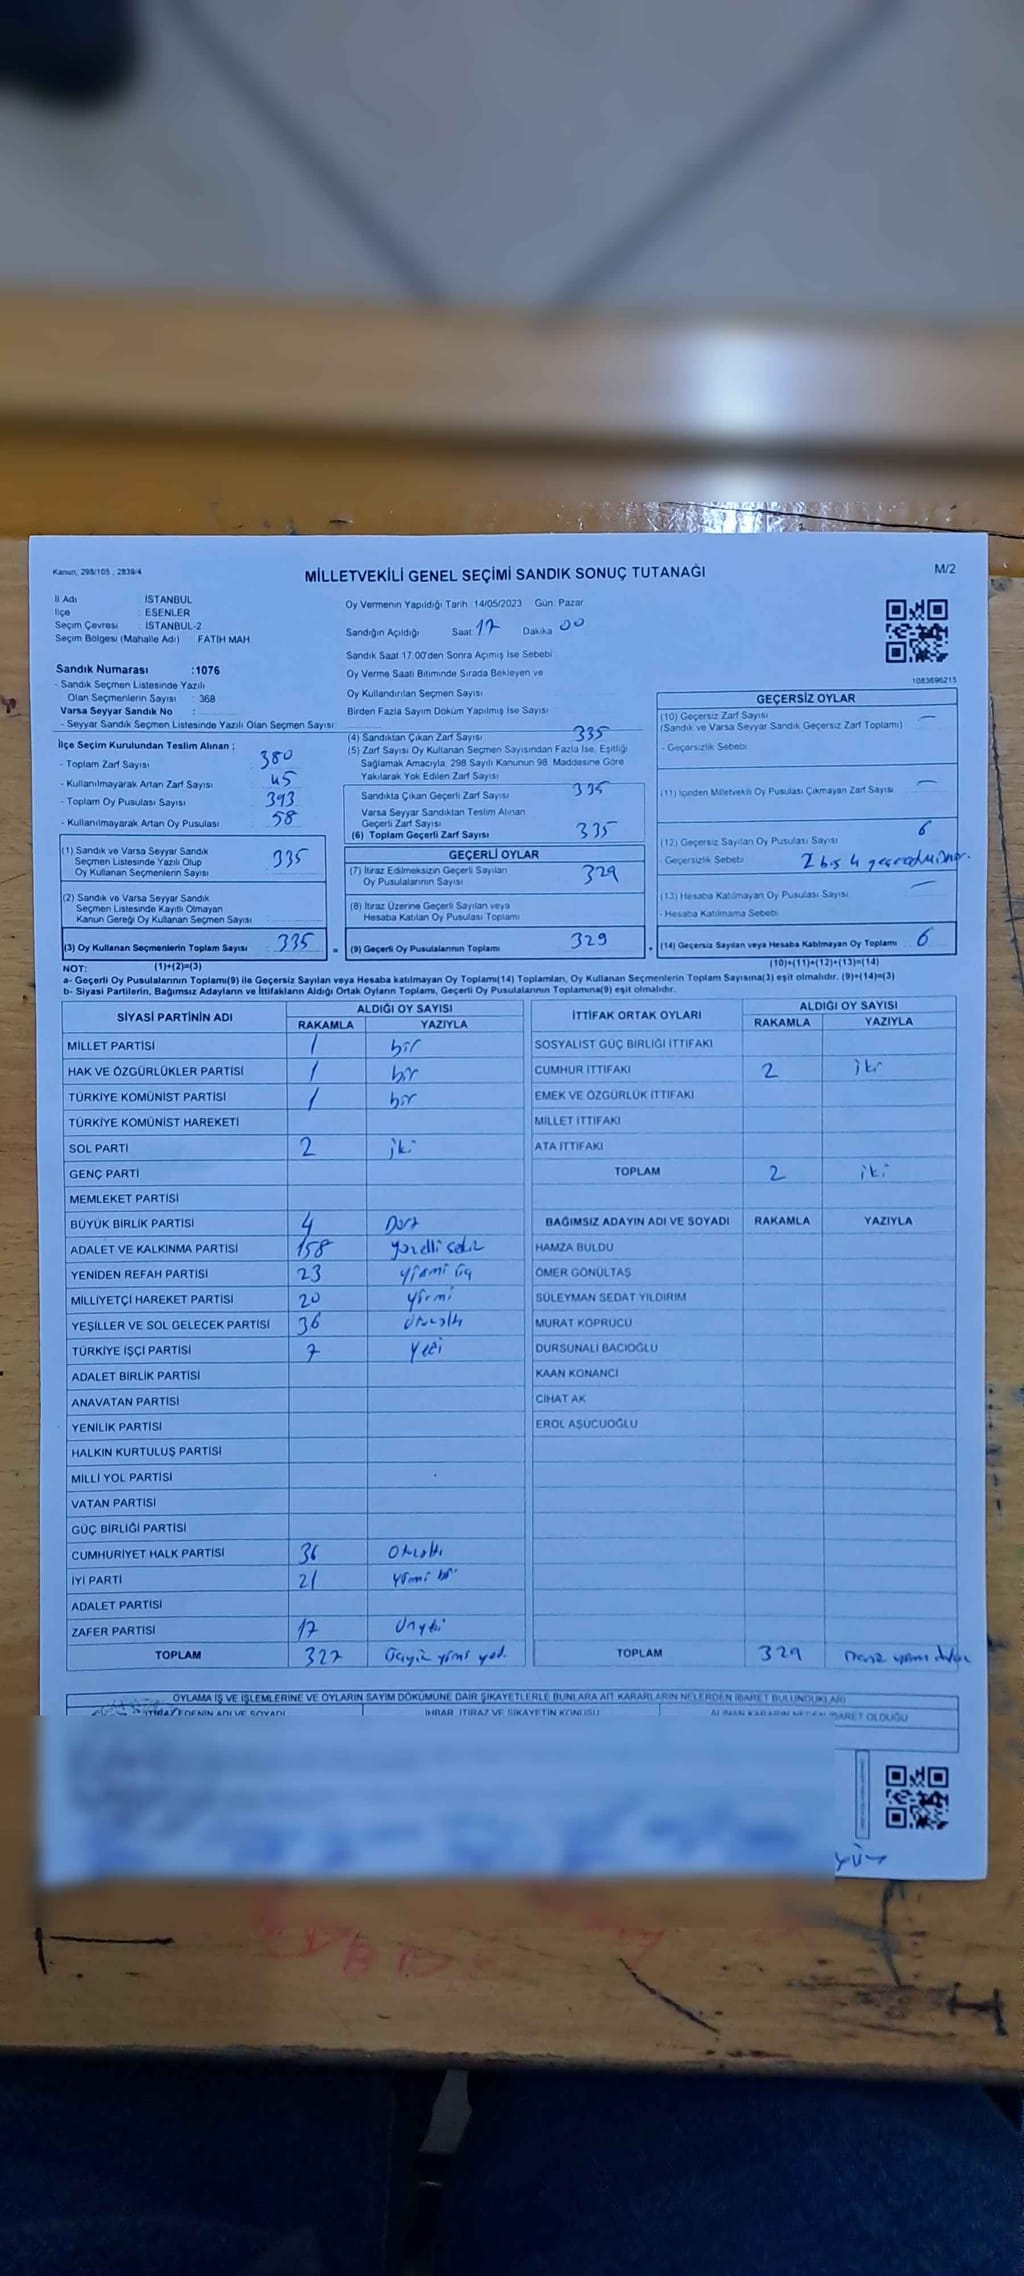 Kanun: 298/105 , 2839/4
MİLLETVEKİLİ GENEL SEÇİMİ SANDIK SONUÇ TUTANAĞI
M/2
İl Adı : İSTANBUL
İlçe : ESENLER
Seçim Çevresi : İSTANBUL-2
Seçim Bölgesi (Mahalle Adı) : FATİH MAH
Sandık Numarası :1076
- Sandık Seçmen Listesinde Yazılı
Olan Seçmenlerin Sayısı : 368
Varsa Seyyar Sandık No :
- Seyyar Sandık Seçmen Listesinde Yazılı Olan Seçmen Sayısı:
İlçe Seçim Kurulundan Teslim Alınan ;
- Toplam Zarf Sayısı 380
- Kullanılmayarak Artan Zarf Sayısı 45
- Toplam Oy Pusulası Sayısı 393
- Kullanılmayarak Artan Oy Pusulası 58
(1) Sandık ve Varsa Seyyar Sandık
Seçmen Listesinde Yazılı Olup
Oy Kullanan Seçmenlerin Sayısı 335
(2) Sandık ve Varsa Seyyar Sandık
Seçmen Listesinde Kayıtlı Olmayan
Kanun Gereği Oy Kullanan Seçmen Sayısı
(3) Oy Kullanan Seçmenlerin Toplam Sayısı 335
(1)+(2)=(3)
Oy Vermenin Yapıldığı Tarih :14/05/2023 Gün: Pazar
Sandığın Açıldığı Saat: 17 Dakika 00
Sandık Saat 17:00'den Sonra Açılmış İse Sebebi
Oy Verme Saati Bitiminde Sırada Bekleyen ve
Oy Kullandırılan Seçmen Sayısı
Birden Fazla Sayım Döküm Yapılmış İse Sayısı
(4) Sandıktan Çıkan Zarf Sayısı 335
(5) Zarf Sayısı Oy Kullanan Seçmen Sayısından Fazla İse, Eşitliği
Sağlamak Amacıyla, 298 Sayılı Kanunun 98. Maddesine Göre
Yakılarak Yok Edilen Zarf Sayısı
Sandıkta Çıkan Geçerli Zarf Sayısı 335
Varsa Seyyar Sandıktan Teslim Alınan
Geçerli Zarf Sayısı
(6) Toplam Geçerli Zarf Sayısı 335
GEÇERLİ OYLAR
(7) İtiraz Edilmeksizin Geçerli Sayılan
Oy Pusulalarının Sayısı 329
(8) İtiraz Üzerine Geçerli Sayılan veya
Hesaba Katılan Oy Pusulası Toplamı
(9) Geçerli Oy Pusulalarının Toplamı 329
1083696215
GEÇERSİZ OYLAR
(10) Geçersiz Zarf Sayısı —
(Sandık ve Varsa Seyyar Sandık Geçersiz Zarf Toplamı)
- Geçersizlik Sebebi
(11) İçinden Milletvekili Oy Pusulası Çıkmayan Zarf Sayısı —
(12) Geçersiz Sayılan Oy Pusulası Sayısı 6
- Geçersizlik Sebebi 2 boş 4
(13) Hesaba Katılmayan Oy Pusulası Sayısı —
- Hesaba Katılmama Sebebi
(14) Geçersiz Sayılan veya Hesaba Katılmayan Oy Toplamı 6
(10)+(11)+(12)+(13)=(14)
NOT:
a- Geçerli Oy Pusulalarının Toplamı(9) ile Geçersiz Sayılan veya Hesaba katılmayan Oy Toplamı(14) Toplamları, Oy Kullanan Seçmenlerin Toplam Sayısına(3) eşit olmalıdır. (9)+(14)=(3)
b- Siyasi Partilerin, Bağımsız Adayların ve İttifakların Aldığı Ortak Oyların Toplamı, Geçerli Oy Pusulalarının Toplamına(9) eşit olmalıdır.
SİYASİ PARTİNİN ADI ALDIĞI OY SAYISI
RAKAMLA YAZIYLA
MİLLET PARTİSİ 1 bir
HAK VE ÖZGÜRLÜKLER PARTİSİ 1 bir
TÜRKİYE KOMÜNİST PARTİSİ 1 bir
TÜRKİYE KOMÜNİST HAREKETİ
SOL PARTİ 2 iki
GENÇ PARTİ
MEMLEKET PARTİSİ
BÜYÜK BİRLİK PARTİSİ 4 Dört
ADALET VE KALKINMA PARTİSİ 158 yüzelli sekiz
YENİDEN REFAH PARTİSİ 23 yirmi üç
MİLLİYETÇİ HAREKET PARTİSİ 20 yirmi
YEŞİLLER VE SOL GELECEK PARTİSİ 36 otuzaltı
TÜRKİYE İŞÇİ PARTİSİ 7 yedi
ADALET BİRLİK PARTİSİ
ANAVATAN PARTİSİ
YENİLİK PARTİSİ
HALKIN KURTULUŞ PARTİSİ
MİLLİ YOL PARTİSİ
VATAN PARTİSİ
GÜÇ BİRLİĞİ PARTİSİ
CUMHURİYET HALK PARTİSİ 36 Otuzaltı
İYİ PARTİ 21 yirmi bir
ADALET PARTİSİ
ZAFER PARTİSİ 17 Onyedi
TOPLAM 327 Üçyüz yirmi yedi
İTTİFAK ORTAK OYLARI ALDIĞI OY SAYISI
RAKAMLA YAZIYLA
SOSYALİST GÜÇ BİRLİĞİ İTTİFAKI
CUMHUR İTTİFAKI 2 iki
EMEK VE ÖZGÜRLÜK İTTİFAKI
MİLLET İTTİFAKI
ATA İTTİFAKI
TOPLAM 2 iki
BAĞIMSIZ ADAYIN ADI VE SOYADI RAKAMLA YAZIYLA
HAMZA BULDU
ÖMER GÖNÜLTAŞ
SÜLEYMAN SEDAT YILDIRIM
MURAT KÖPRÜCÜ
DURSUNALİ BACIOĞLU
KAAN KONANCİ
CİHAT AK
EROL AŞUCUOĞLU
TOPLAM 329
OYLAMA İŞ VE İŞLEMLERİNE VE OYLARIN SAYIM DÖKÜMÜNE DAİR ŞİKAYETLERLE BUNLARA AİT KARARLARIN NELERDEN İBARET BULUNDUKLARI
İTİRAZ EDENİN ADI VE SOYADI İHBAR, İTİRAZ VE ŞİKAYETİN KONUSU ALINAN KARARIN NEDEN İBARET OLDUĞU